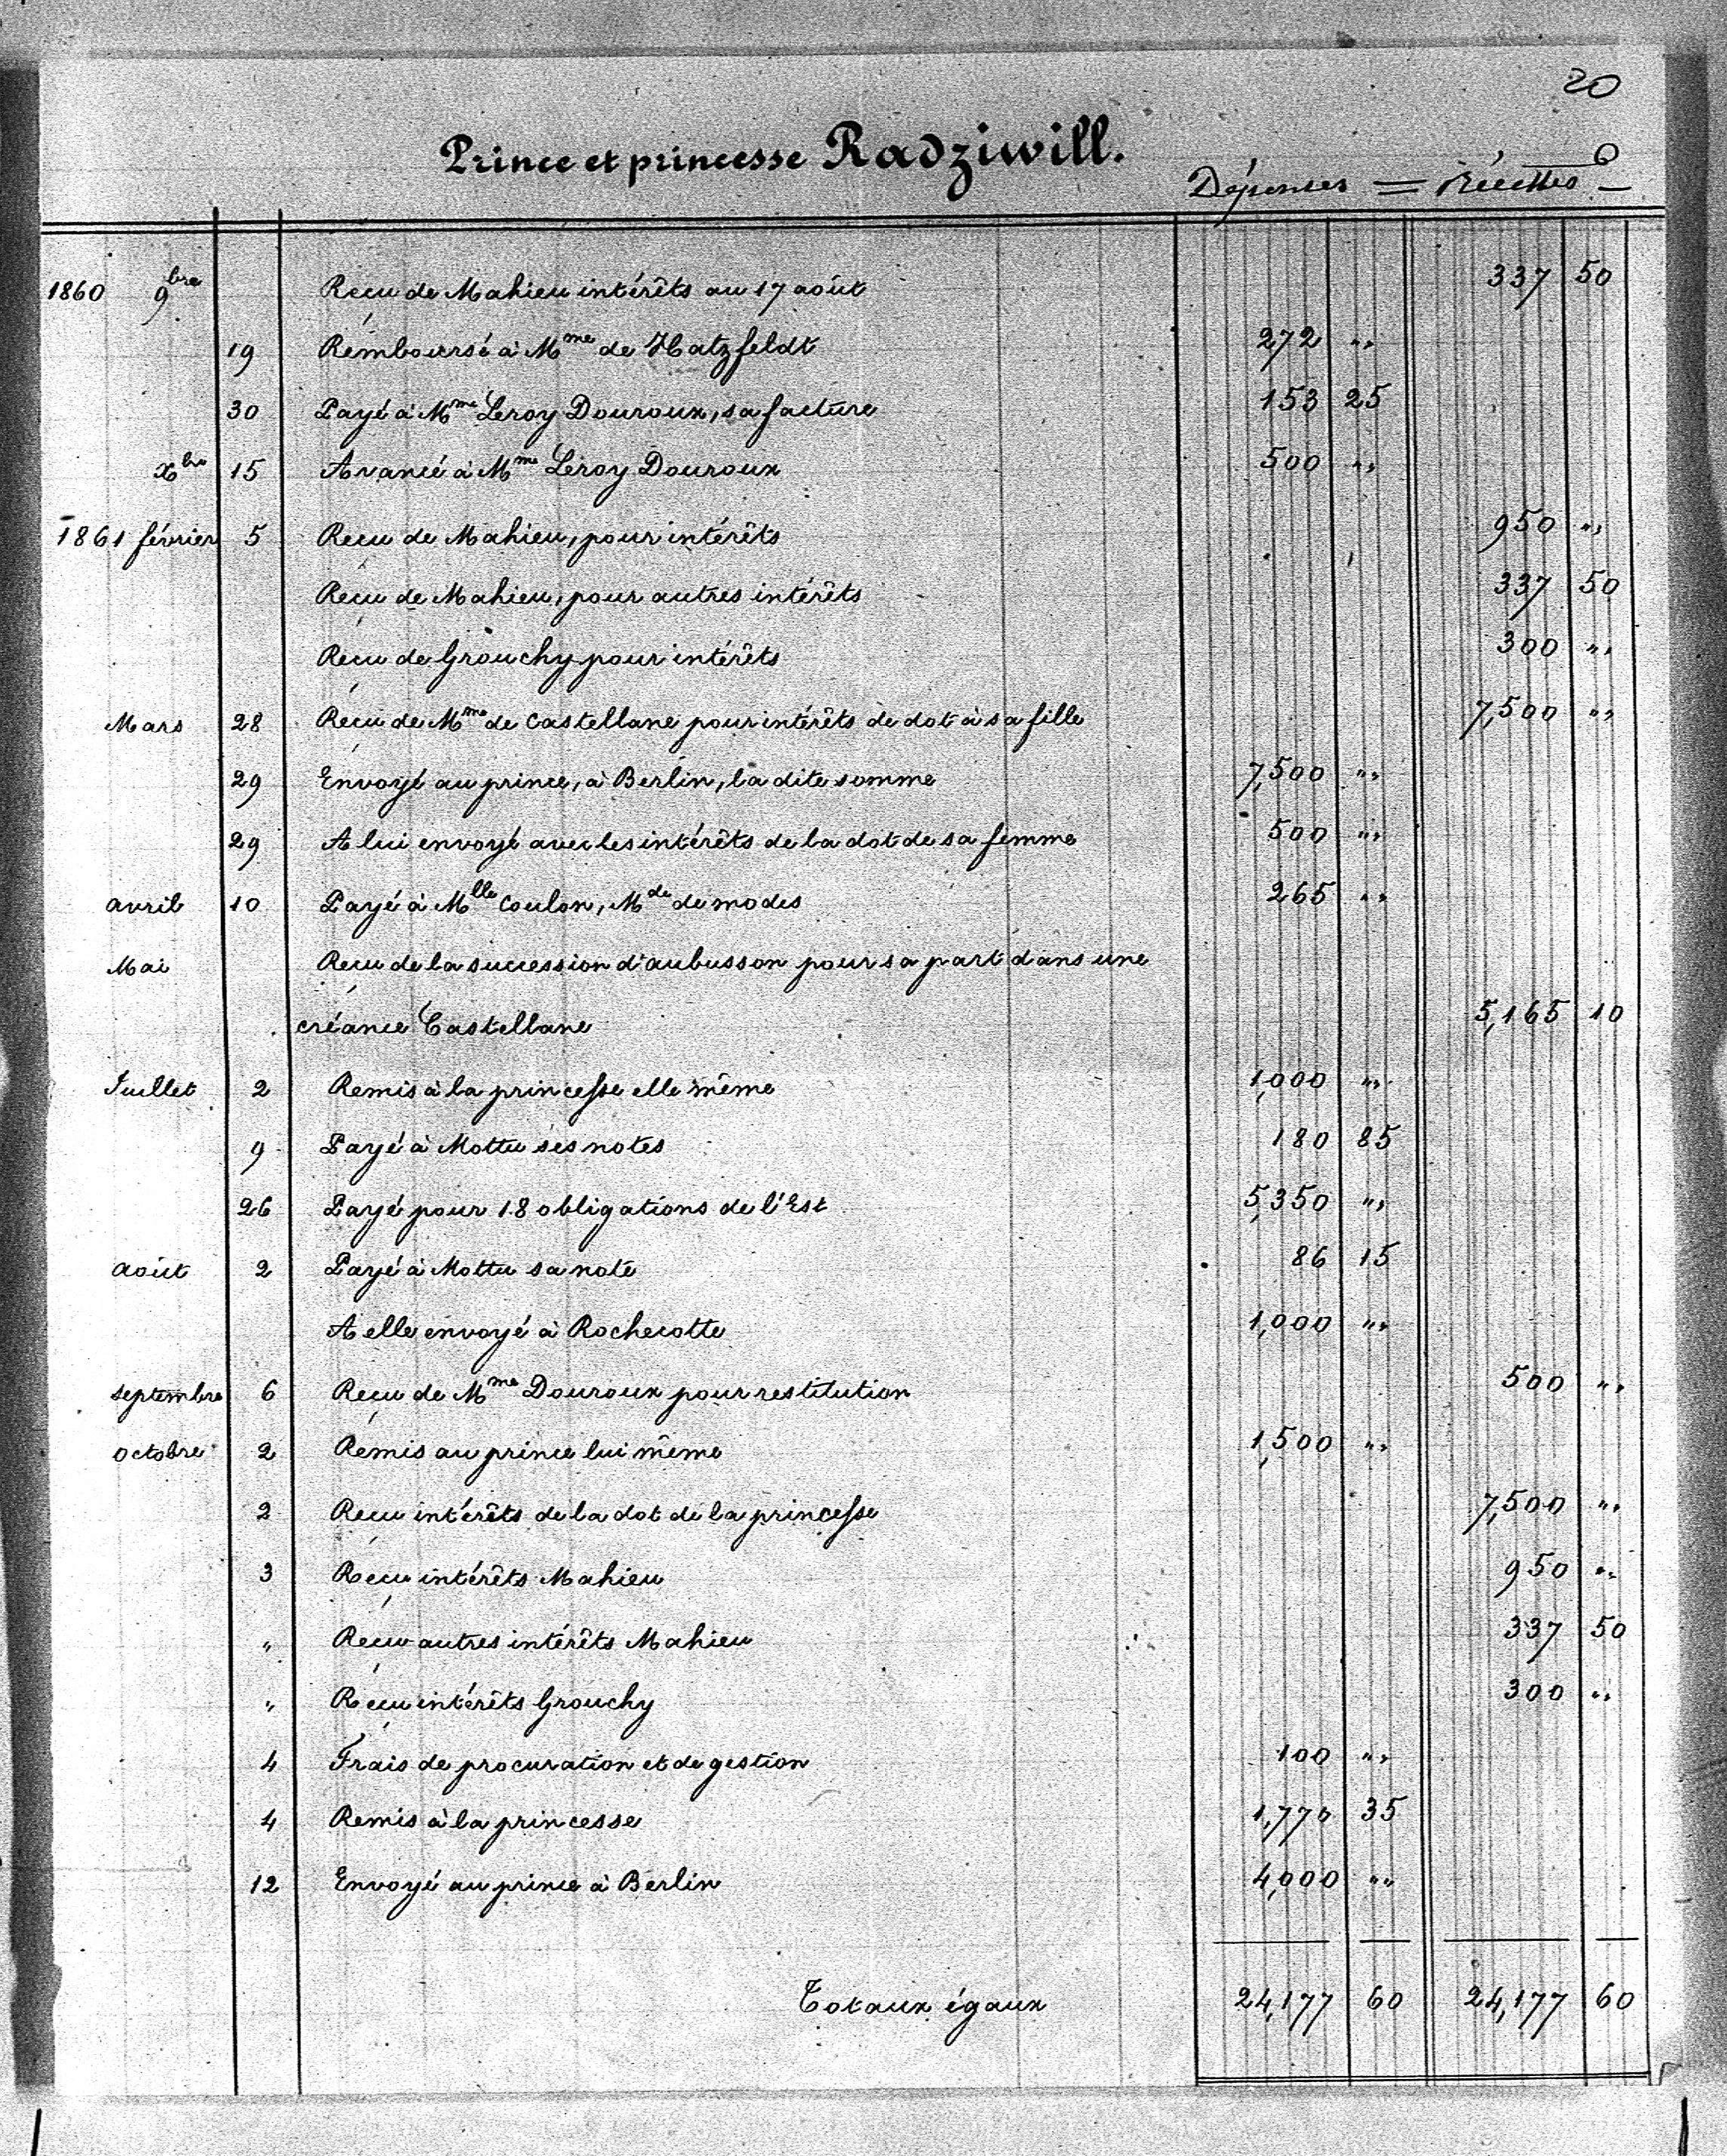 20
Prince et princesse Radziwill.
6
Dépenses = Récettes —
1860 9bre Reçu de Mahieu intérêts au 17 août 337 50
19 Remboursé à Mme de Hatzfeldt 272 "
30 Payé à Mme Leroy Douroux, sa facture 153 25
Xbre 15 Avancé à Mme Leroy Douroux 500 "
1861 février 5 Reçu de Mahieu, pour intérêts 950 "
Reçu de Mahieu, pour autres intérêts 337 50
Reçu de Grouchy pour intérêts 300 "
Mars 28 Reçu de Mme de Castellane pour intérêts de dot à sa fille 7,500 "
29 Envoyé au prince, à Berlin, la dite somme 7,500 "
29 A lui envoyé avec les intérêts de la dot de sa femme 500 "
avril 10 Payé à Mlle Coulon, Mde de modes 265 "
Mai Reçu de la succession d'aubusson pour sa part dans une
créance Castellane 5,165 10
Juillet 2 Remis à la princesse elle même 1,000 "
9 Payé à Mottu ses notes 180 85
26 Payé pour 18 obligations de l'Est 5,350 "
août 2 Payé à Mottu sa note 86 15
A elle envoyé à Rochecotte 1,000 "
septembre 6 Reçu de Mme Douroux pour restitution 500 "
octobre 2 Remis au prince lui même 1,500 "
2 Reçu intérêts de la dot de la princesse 7,500 "
3 Reçu intérêts Mahieu 950 "
" Reçu autres intérêts Mahieu 337 50
" Reçu intérêts Grouchy 300 "
4 Frais de procuration et de gestion 100 "
4 Remis à la princesse 1,770 35
12 Envoyé au prince à Berlin 4,000 "
Totaux égaux 24,177 60 24,177 60